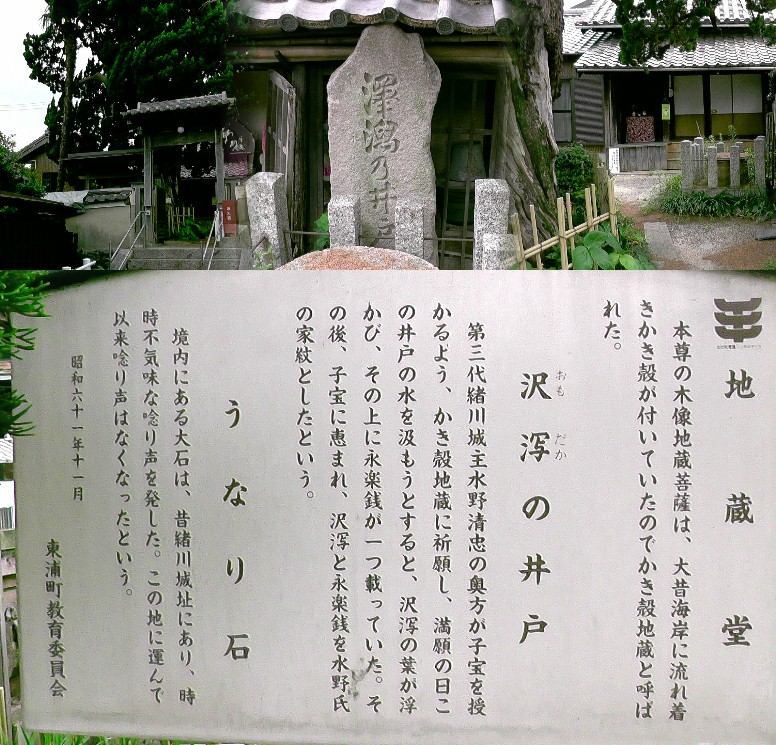 澤瀉の井戸
地蔵堂
本尊の木像地蔵菩薩は、大昔海岸に流れ着
きかき殻が付いていたのでかき殻地蔵と呼ば
れた。
沢瀉の井戸
おも だか
第三代緒川城主水野清忠の奥方が子宝を授
かるよう、かき殻地蔵に祈願し、満願の日こ
の井戸の水を汲もうとすると、沢瀉の葉が浮
かび、その上に永楽銭が一つ載っていた。そ
の後、子宝に恵まれ、沢瀉と永楽銭を水野氏
の家紋としたという。
うなり石
境内にある大石は、昔緒川城址にあり、時
時不気味な唸り声を発した。この地に運んで
以来唸り声はなくなったという。
昭和六十一年十一月
東浦町教育委員会